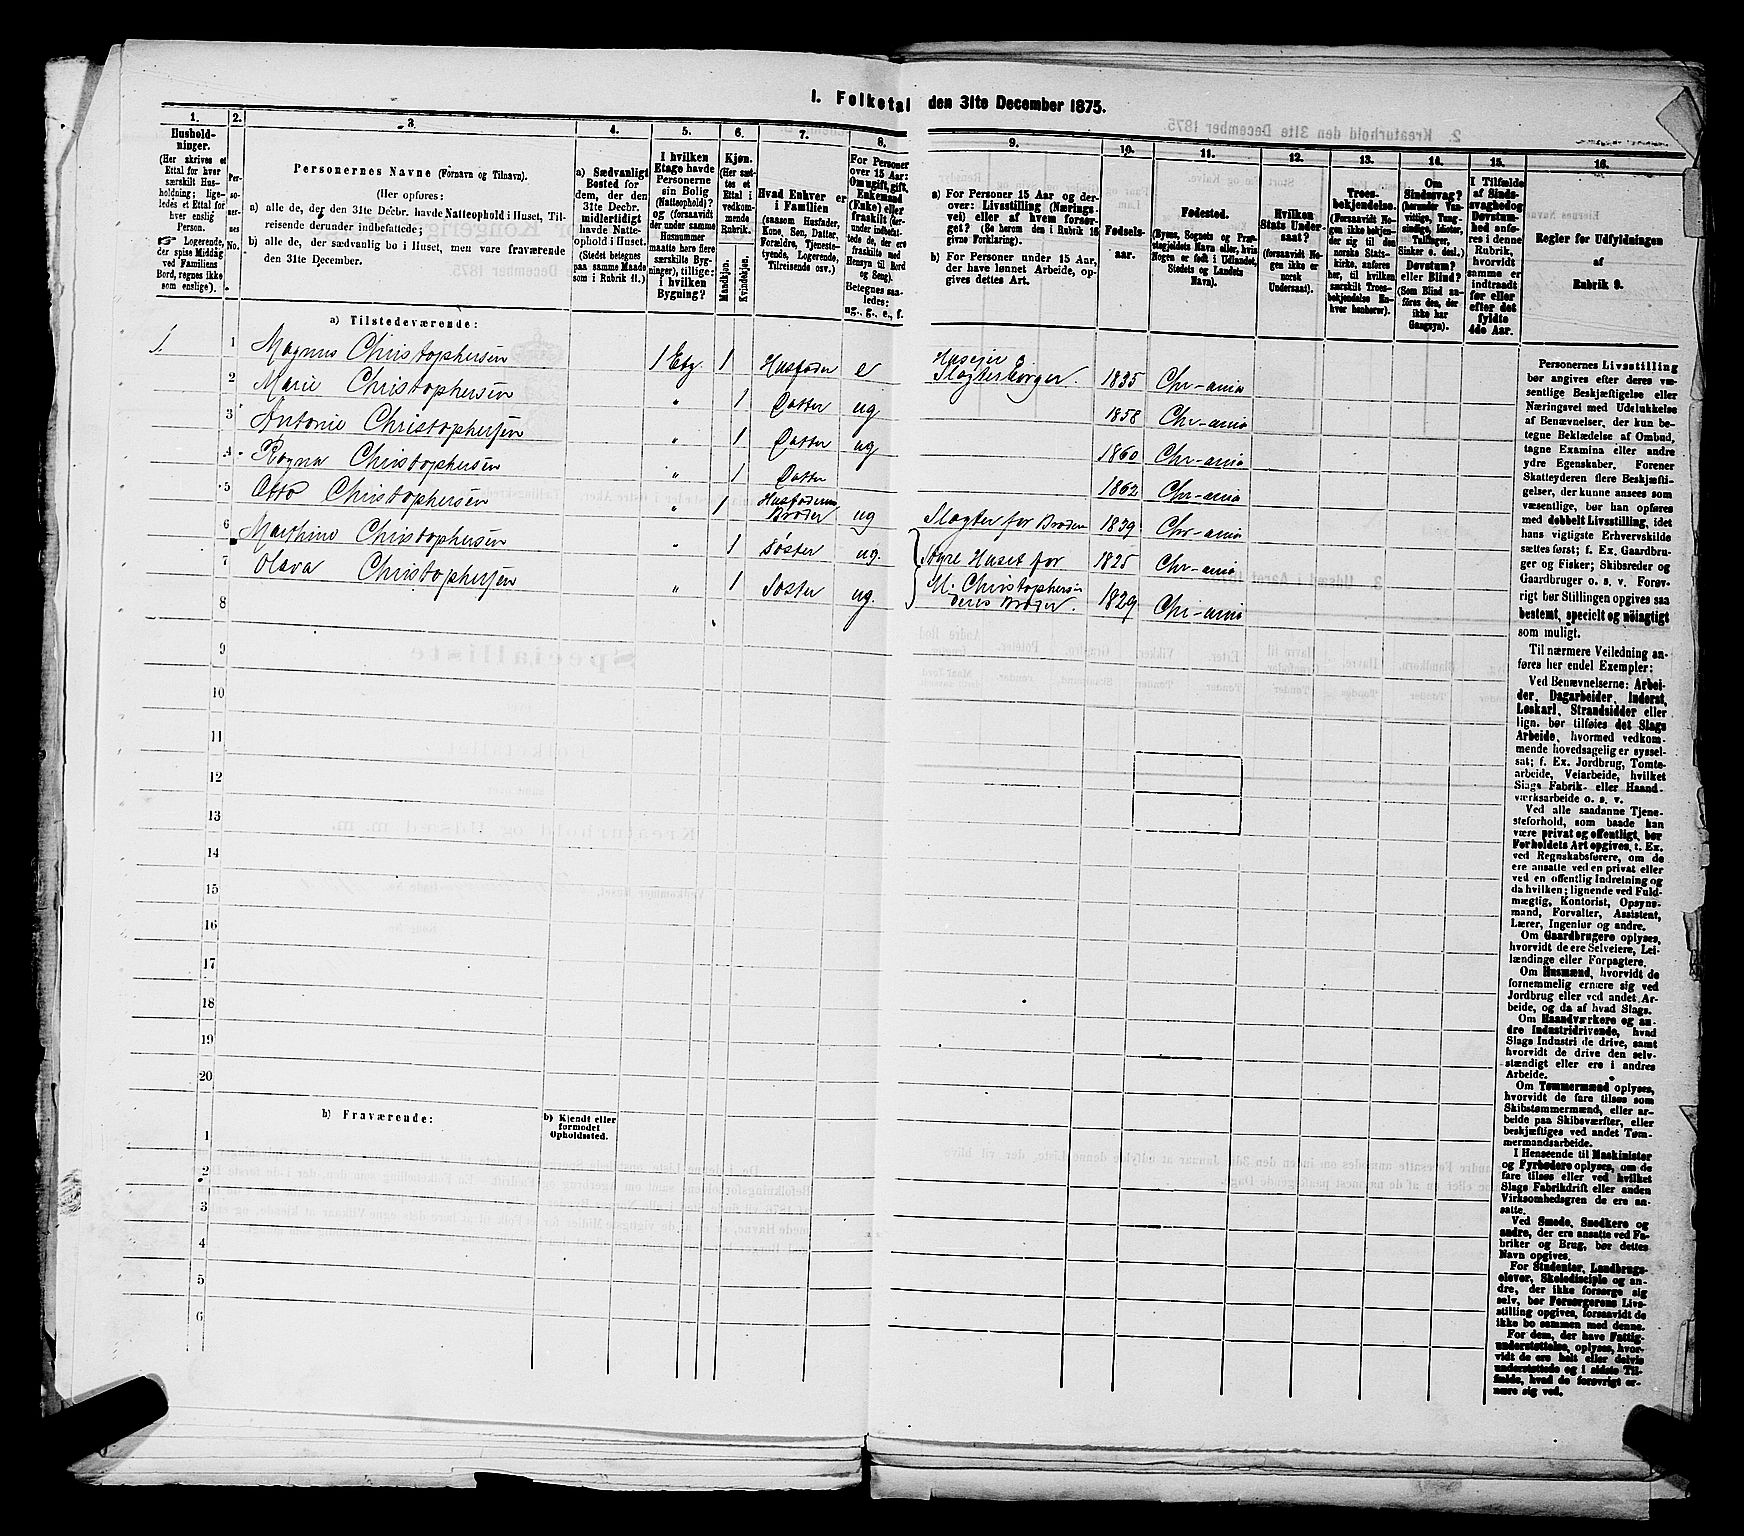 1. Folketal den 31te December 1875.
1.
Hushold-
ninger.
(Her skrives et
Ettal for hver
særskilt Hus-
holdning; lige-
ledes et Ettal for
hver enslig
Person.
Logerende,
der spise Middag
ved Familiens
Bord, regnes ikke
som enslige).
2.
Per-
so-
ner-
nes
No.
3.
Personernes Navne (Fornavn og Tilnavn).
(Her opføres:
a) alle de, der den 31te Decbr. havde Natteophold i Huset, Til-
reisende derunder indbefattede;
b) alle de, der sædvanlig bo i Huset, men vare fraværende
den 31te December.
4.
a) Sædvanligt
Bosted for
dem, der den
31te Decbr.
midlertidigt
havde Natte-
ophold i Huset.
(Stedet betegnes
paa samme Maade
som i Rubrik 11.)
5.
I hvilken
Etage havde
Personerne
sin Bolig
(Natteophold)?
og (forsaavidt
der under samme
Husnummer
maatte høre flere
særskilte Byg-
ninger), tillige:
i hvilken
Bygning?
6.
Kjøn.
(Her sæt-
tes et
Ettal i
vedkom-
mende
Rubrik.
Mandkjøn.
Kvindekjøn.
7.
Hvad Enhver er
i Familien
(saasom Husfader,
Kone, Søn, Datter,
Forældre, Tjeneste-
tyende, Logerende,
Tilreisende osv.)
8.
For Personer
over 15 Aar:
Om ugift, gift,
Enkemand
(Enke) eller
fraskilt
Betegnes saa-
ledes:
ug., g., e., f.
9.
a) For Personer 15 Aar og der-
over: Livsstilling (Nærings-
vei) eller af hvem forsør-
get? (Se herom den i Rubrik 16
givne Forklaring).
b) For Personer under 15 Aar,
der have lønnet Arbeide, op-
gives dettes Art.
10.
Fødsels-
aar.
11.
Fødested.
(Byens, Sognets og Præ-
stegjeldets Navn eller, hvis
Nogen er født i Udlandet,
Stedets og Landets
Navn).
12.
Hvilken
Stats Under-
saat?
(forsaavidt No-
gen ikke er
norsk
Undersaat).
13.
Troes-
bekjendelse.
(Forsaavidt No-
gen ikke bekjen-
der sig til den
norske Stats-
kirke, anføres
her, til hvilken
særskilt Troes-
bekjendelse En-
hver henhører).
14.
Om
Sindssvag?
(herunder Van-
vittige, Tung-
sindige, Idioter,
Tullinger,
Sinker o. desl.).
Døvstum?
eller Blind?
(Som Blind an-
føres den, der
ikke har
Gangsyn).
15.
I Tilfælde
af Sinds-
svaghed og
Døvstum-
hed anfø-
res i denne
Rubrik,
hvorvidt
samme er
indtraadt
før eller
efter det
fyldte
4de Aar.
16.
Regler for Udfyldningen
af
Rubrik 9.
a) Tilstedeværende:
1 1 Magnus Christophersen 1 Etg. 1 Husfader e Huseier & Slagterborger. 1835 Chr-ania
2 Marie Christophersen " 1 Datter ug 1858 Chr-ania
3 Antonie Christophersen " 1 Datter ug 1860 Chr-ania
4 Ragna Christophersen " 1 Datter 1862 Chr-ania
5 Otto Christophersen " 1 Husfaderens Broder ug Slagter for Broderen 1839 Chr-ania
6 Marthine Christophersen " 1 Søster ug. Styre Huset for 1825 Chr-ania
7 Olava Christophersen " 1 Søster ug. M. Christophersen deres Broder. 1829 Chr-ania
8
9
10
11
12
13
14
15
16
17
18
19
20
b) Fraværende:
b) Kjendt eller
formodet
Opholdssted.
1
2
3
4
5
6
Personernes Livsstilling
bør angives efter deres væ-
sentlige Beskjæftigelse eller
Næringsvei med Udelukkelse
af Benævnelser, der kun be-
tegne Beklædelse af Ombud,
tagne Examina eller andre
ydre Egenskaber. Forener
Skatteyderen flere Beskjæfti-
gelser, der kunne ansees som
væsentlige, bør han opføres
med dobbelt Livsstilling, idet
hans vigtigste Erhvervskilde
sættes først; f. Ex. Gaardbru-
ger og Fisker; Skibsreder og
Gaardbruger o. s. v. Forøv-
rigt bør Stillingen opgives saa
bestemt, specielt og nøiagtigt
som muligt.
Til nærmere Veiledning an-
føres her endel Exempler:
Ved Benævnelserne: Arbei-
der, Dagarbeider, Inderst,
Løskarl, Strandsidder eller
lign. bør tilføies det Slags
Arbeide, hvormed vedkom-
mende hovedsagelig er syssel-
sat; f. Ex. Jordbrug, Tomte-
arbeide, Veiarbeide, hvilket
Slags Fabrik- eller Haand-
værksarbeide o. s. v.
Ved alle saadanne Tjene-
steforhold, som baade kan
være privat og offentligt, bør
Forholdets Art opgives, t. Ex.
ved Regnskabsførere, om de
ere ansatte ved en privat eller
ved en offentlig Indretning og
da hvilken; lignende ved Fuld-
mægtig, Kontorist, Opsyns-
mand, Forvalter, Assistent,
Lærer, Ingeniør og andre.
Om Gaardbrugere oplyses,
hvorvidt de ere Selveiere, Lei-
lændinge eller Forpagtere.
Om Husmænd, hvorvidt de
fornemmelig ernære sig ved
Jordbrug eller ved andet Ar-
beide, og da af hvad Slags.
Om Haandværkere og an-
dre Industridrivende, hvad
Slags Industri de drive, samt
hvorvidt de drive den selv-
stændigt eller ere i andres
Arbeide.
Om Tømmermænd oplyses,
hvorvidt de fare tilsøs som
Skibstømmermænd, eller ar-
beide paa Skibsværfter, eller
beskjæftiges ved andet Tøm-
mermandsarbeide.
I Henseende til Maskinister
og Fyrbødere oplyses, om de
fare tilsøs eller ved hvilket
Slags Fabrikdrift eller anden
Virksomhedsgren de ere an-
satte.
Ved Smede, Snedkere og
andre, der ere ansatte ved Fa-
briker og Brug, bør dettes
Navn opgives.
For Studenter, Landbrugs-
elever, Skoledisciple og an-
dre, der ikke forsørge sig
selv, bør Forsørgerens Livs-
stilling opgives, forsaavidt de
ikke bo sammen med denne.
For dem, der have Fattig-
understøttelse, oplyses, hvor-
vidt de ere helt eller delvis
understøttede og i sidste Til-
fælde, hvad de forøvrigt er-
nære sig ved.